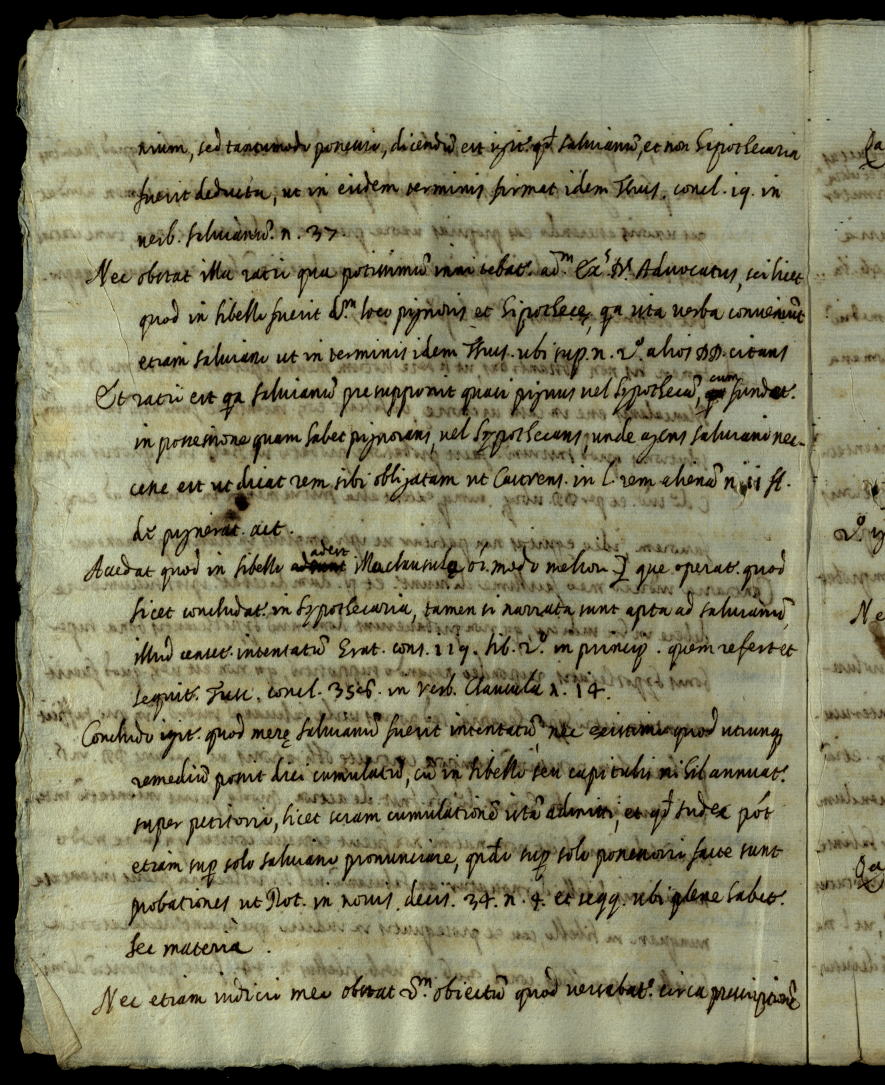 rium, sed tantumodo possessoriũ, dicendũ est igit.' qđ salvianũ, et non hipothecaria
fuerit deducta, ut in eisdem terminis firmat idem Thus. concl. 19. in
verb. salvianũ. n. 37.
Nec obstat illa ratio qua potissimũ adᵐ Exˢ Dˢ Advocatus, scilicet
quod in libello fuerit dᵐ loco pignoris et hipothecę, qa ista verba conveniũt
etiam salviano ut in terminis idem Thus. ubi sup. n. 2º. alios DD. citans
Et ratio est qa salvianũ presupponit quasi pignus vel hypothecã, cum fundat.'
in possessione quam habet pignorans, vel hypothecans, unde agens salviano nec-
cesse est ut dicat rem sibi obligatam ut Castrens. in l. rem alienã n. 11 ff.
de pignerat. act.
Accedat quod in libello adest illa clausula oĩ. modo meliori que operat. quod
licet concludat. in hypothecaria, tamen si narrata sunt apta ad salvianũ,
illud censet. intentatũ Erat. cons. 119. lib. 2º in princip. quem refert et
sequit. Tusc. concl. 356. in verb. Clausula n. 14.
Concludo igit. quod merę salvianũ fuerit intentatũ, nec existimo quod utrunq
remediũ possit dici cumulatũ, cũ in libello seu capitulis nihil annuat.'
super petitorio, licet sciam cumulationẽ istã admitti, et qđ Iudex põt
etiam sup solo salviano pronunciare, qñdo sup solo possessorio facte sunt
probationes ut Rot. in novis. decis. 34. n. 4. et seqq. ubi plene habet.'
hec materia.
Nec etiam iudicio meo obstat 2ᵐ obiectũ quod versabat.' circa prescriptionẽ